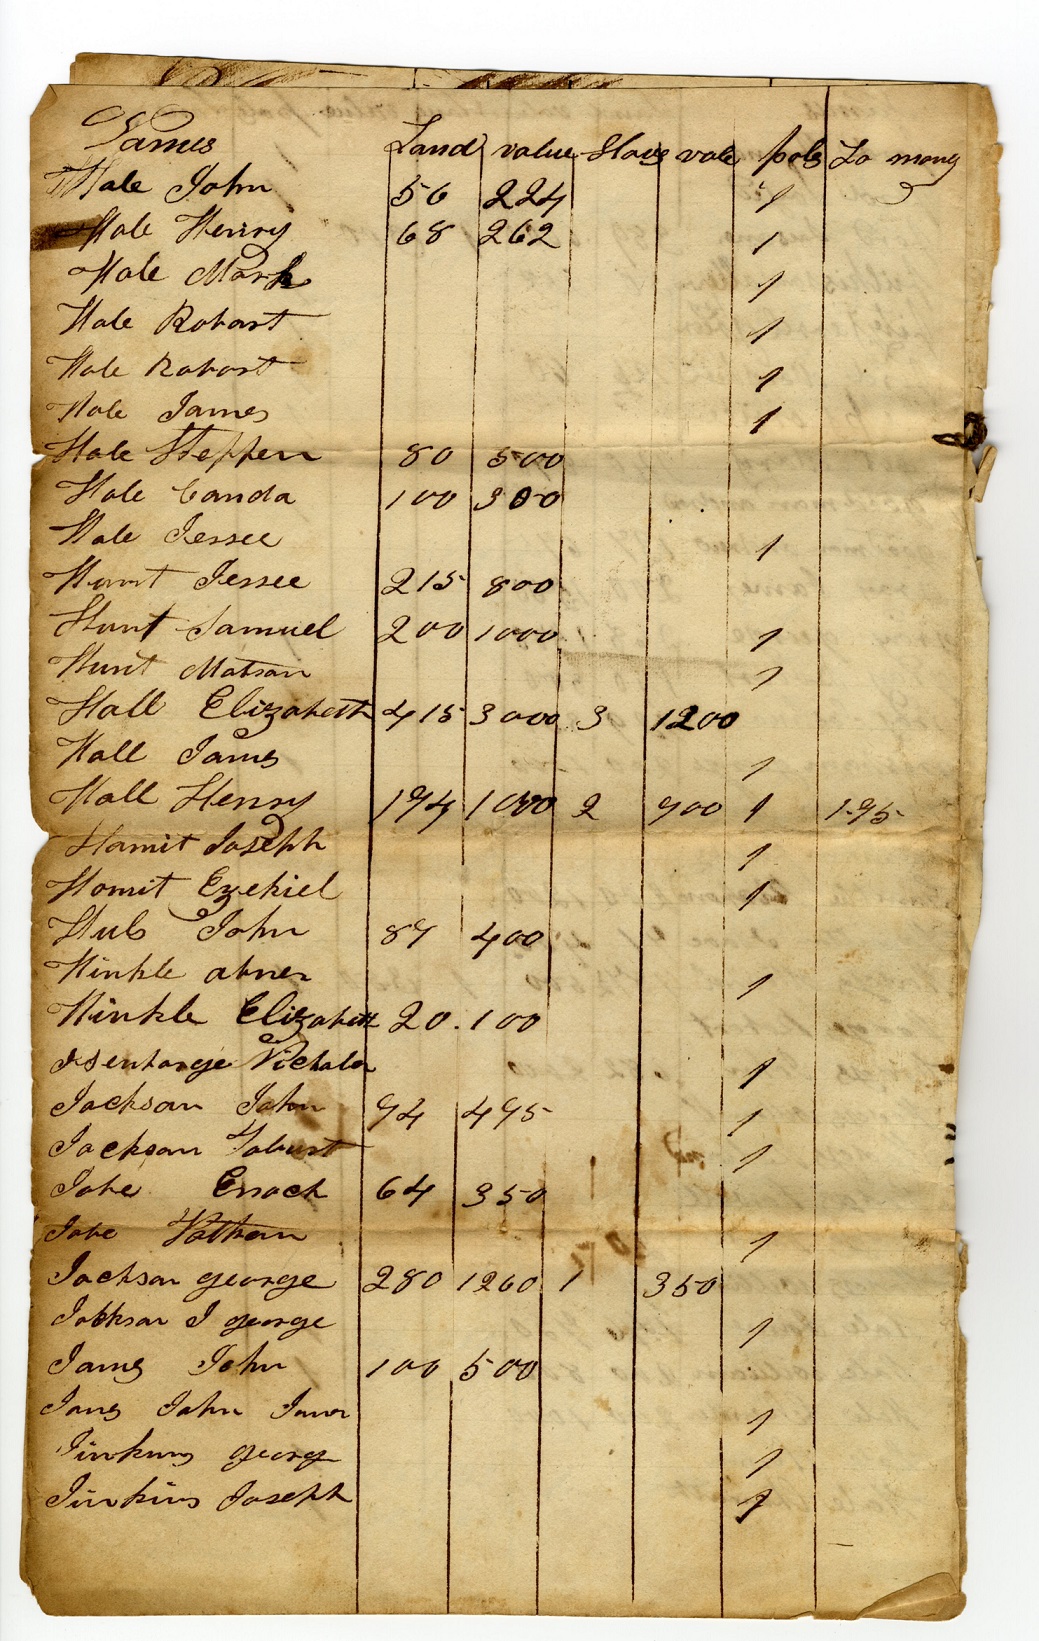 Names Land value Slave vale pols To mony
Hale John 56 224 1
Hale Henry 68 262 1
Hale Mark 1
Hale Robart 1
Hale Robart 1
Hale James 1
Hale Steppen 80 500
Hale Canda 100 300
Hale Jessee 1
Hunt Jessee 215 800
Hunt Samuel 200 1000 1
Hunt Matson 1
Hall Elizabeth 415 3000 3 1200
Hall James 1
Hall Henry 194 1000 2 900 1 1.95
Hamit Joseph 1
Hamit Ezekiel 1
Hub John 87 400
Hinkle abner 1
Hinkle Elizabett 20 . 100
1
Jackson John 94 495 1
Jackson 1
Jobe Enoch 64 350
Jobe Nathan 1
Jackson george 280 1260 1 350
Jackson J george 1
James John 100 500
Jams John 1
Jinkins george 1
Jinkins Joseph 1